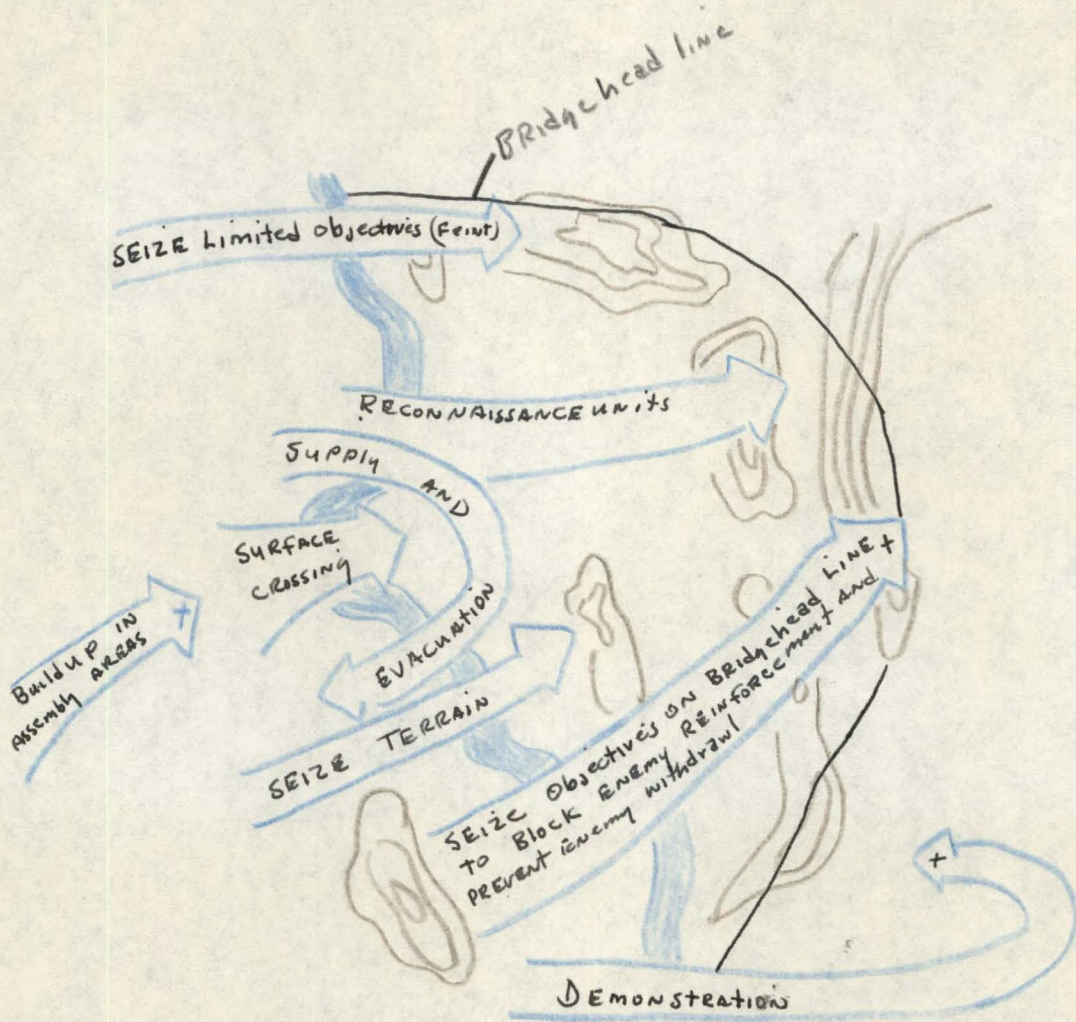 BRidgehead line
SEIZE Limited objectives (Feint)
RECONNAISSANCE units
Supply AND EVACUATION
SURFACE
CROSSING
Buildup IN
Assembly AREAS
+
SEIZE TERRAIN
SEIZE Objectives ON BRidgehead LINE +
to Block ENEMY REINFORCEMENT AND
PREVENT ENEMY withdrawl
+
DEMONSTRATION